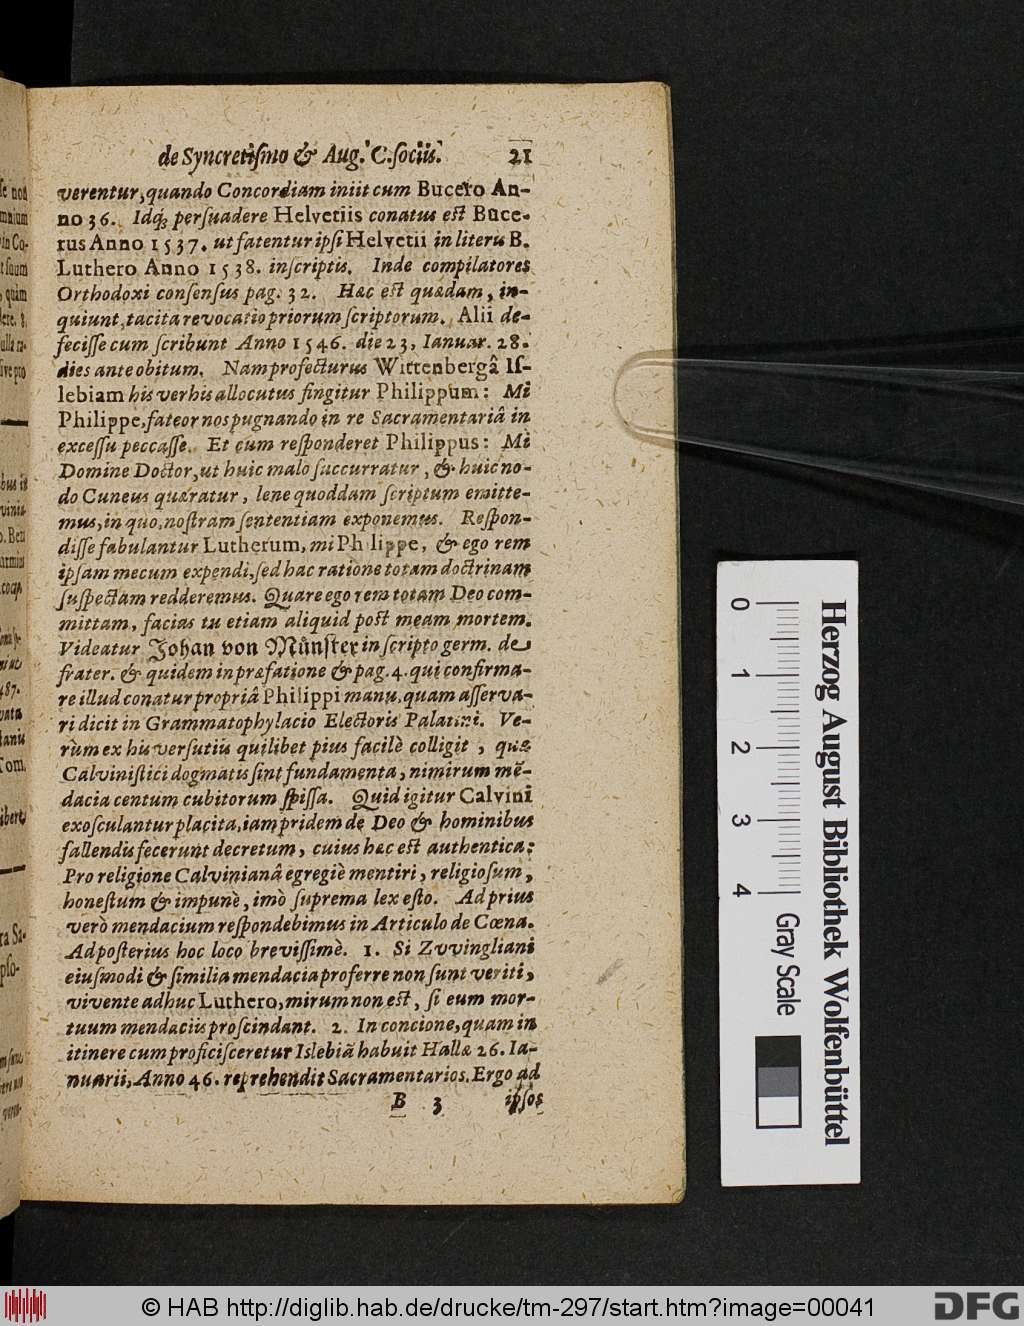 de Syncretiſmo & Aug. C. ſociis. 21
verentur, quando Concordiam iniit cum Bucero An-
no 36. Idq; perſuadere Helvetiis conatus eſt Buce-
rus Anno 1537. ut fatentur ipſi Helvetii in literis B.
Luthero Anno 1538. inſcriptis. Inde compilatores
Orthodoxi conſenſus pag. 32. Hæc eſt quædam, in-
quiunt, tacita revocatio priorum ſcriptorum. Alii de-
feciſſe cum ſcribunt Anno 1546. die 23. Ianuar. 28.
dies ante obitum. Nam profecturus Wittenbergâ Iſ-
lebiam his verbis allocutus fingitur Philippum: Mi
Philippe, fateor nos pugnando in re Sacramentariâ in
exceſſu peccaſſe. Et cum reſponderet Philippus: Mi
Domine Doctor, ut huic malo ſuccurratur, & huic no-
do Cuneus quæratur, lene quoddam ſcriptum emitte-
mus, in quo, noſtram ſententiam exponemus. Reſpon-
diſſe fabulantur Lutherum, mi Philippe, & ego rem
ipſam mecum expendi, ſed hac ratione totam doctrinam
ſuſpectam redderemus. Quare ego rem totam Deo com-
mittam, facias tu etiam aliquid poſt meam mortem.
Videatur Johan von Münſter in ſcripto germ. de
frater. & quidem in præfatione & pag. 4. qui confirma-
re illud conatur propriâ Philippi manu, quam aſſerva-
ri dicit in Grammatophylacio Electoris Palatini. Ve-
rùm ex his verſutiis quilibet pius facilè colligit, quæ
Calviniſtici dogmatis ſint fundamenta, nimirum mẽ-
dacia centum cubitorum ſpiſſa. Quid igitur Calvini
exoſculantur placita, iam pridem de Deo & hominibus
fallendis fecerunt decretum, cuius hæc eſt authentica:
Pro religione Calvinianâ egregiè mentiri, religioſum,
honeſtum & impunè, imò ſuprema lex eſto. Ad prius
verò mendacium reſpondebimus in Articulo de Cœna.
Ad poſterius hoc loco breviſſimè. 1. Si Zvvingliani
eiuſmodi & ſimilia mendacia proferre non ſunt veriti,
vivente adhuc Luthero, mirum non eſt, ſi eum mor-
tuum mendaciis proſcindant. 2. In concione, quam in
itinere cum proficiſceretur Islebiã habuit Hallæ 26. Ia-
nuarii, Anno 46. reprehendit Sacramentarios. Ergo ad
B 3 ipſos
0 1 2 3 4 Gray Scale
Herzog August Bibliothek Wolfenbüttel
© HAB http://diglib.hab.de/drucke/tm-297/start.htm?image=00041
DFG